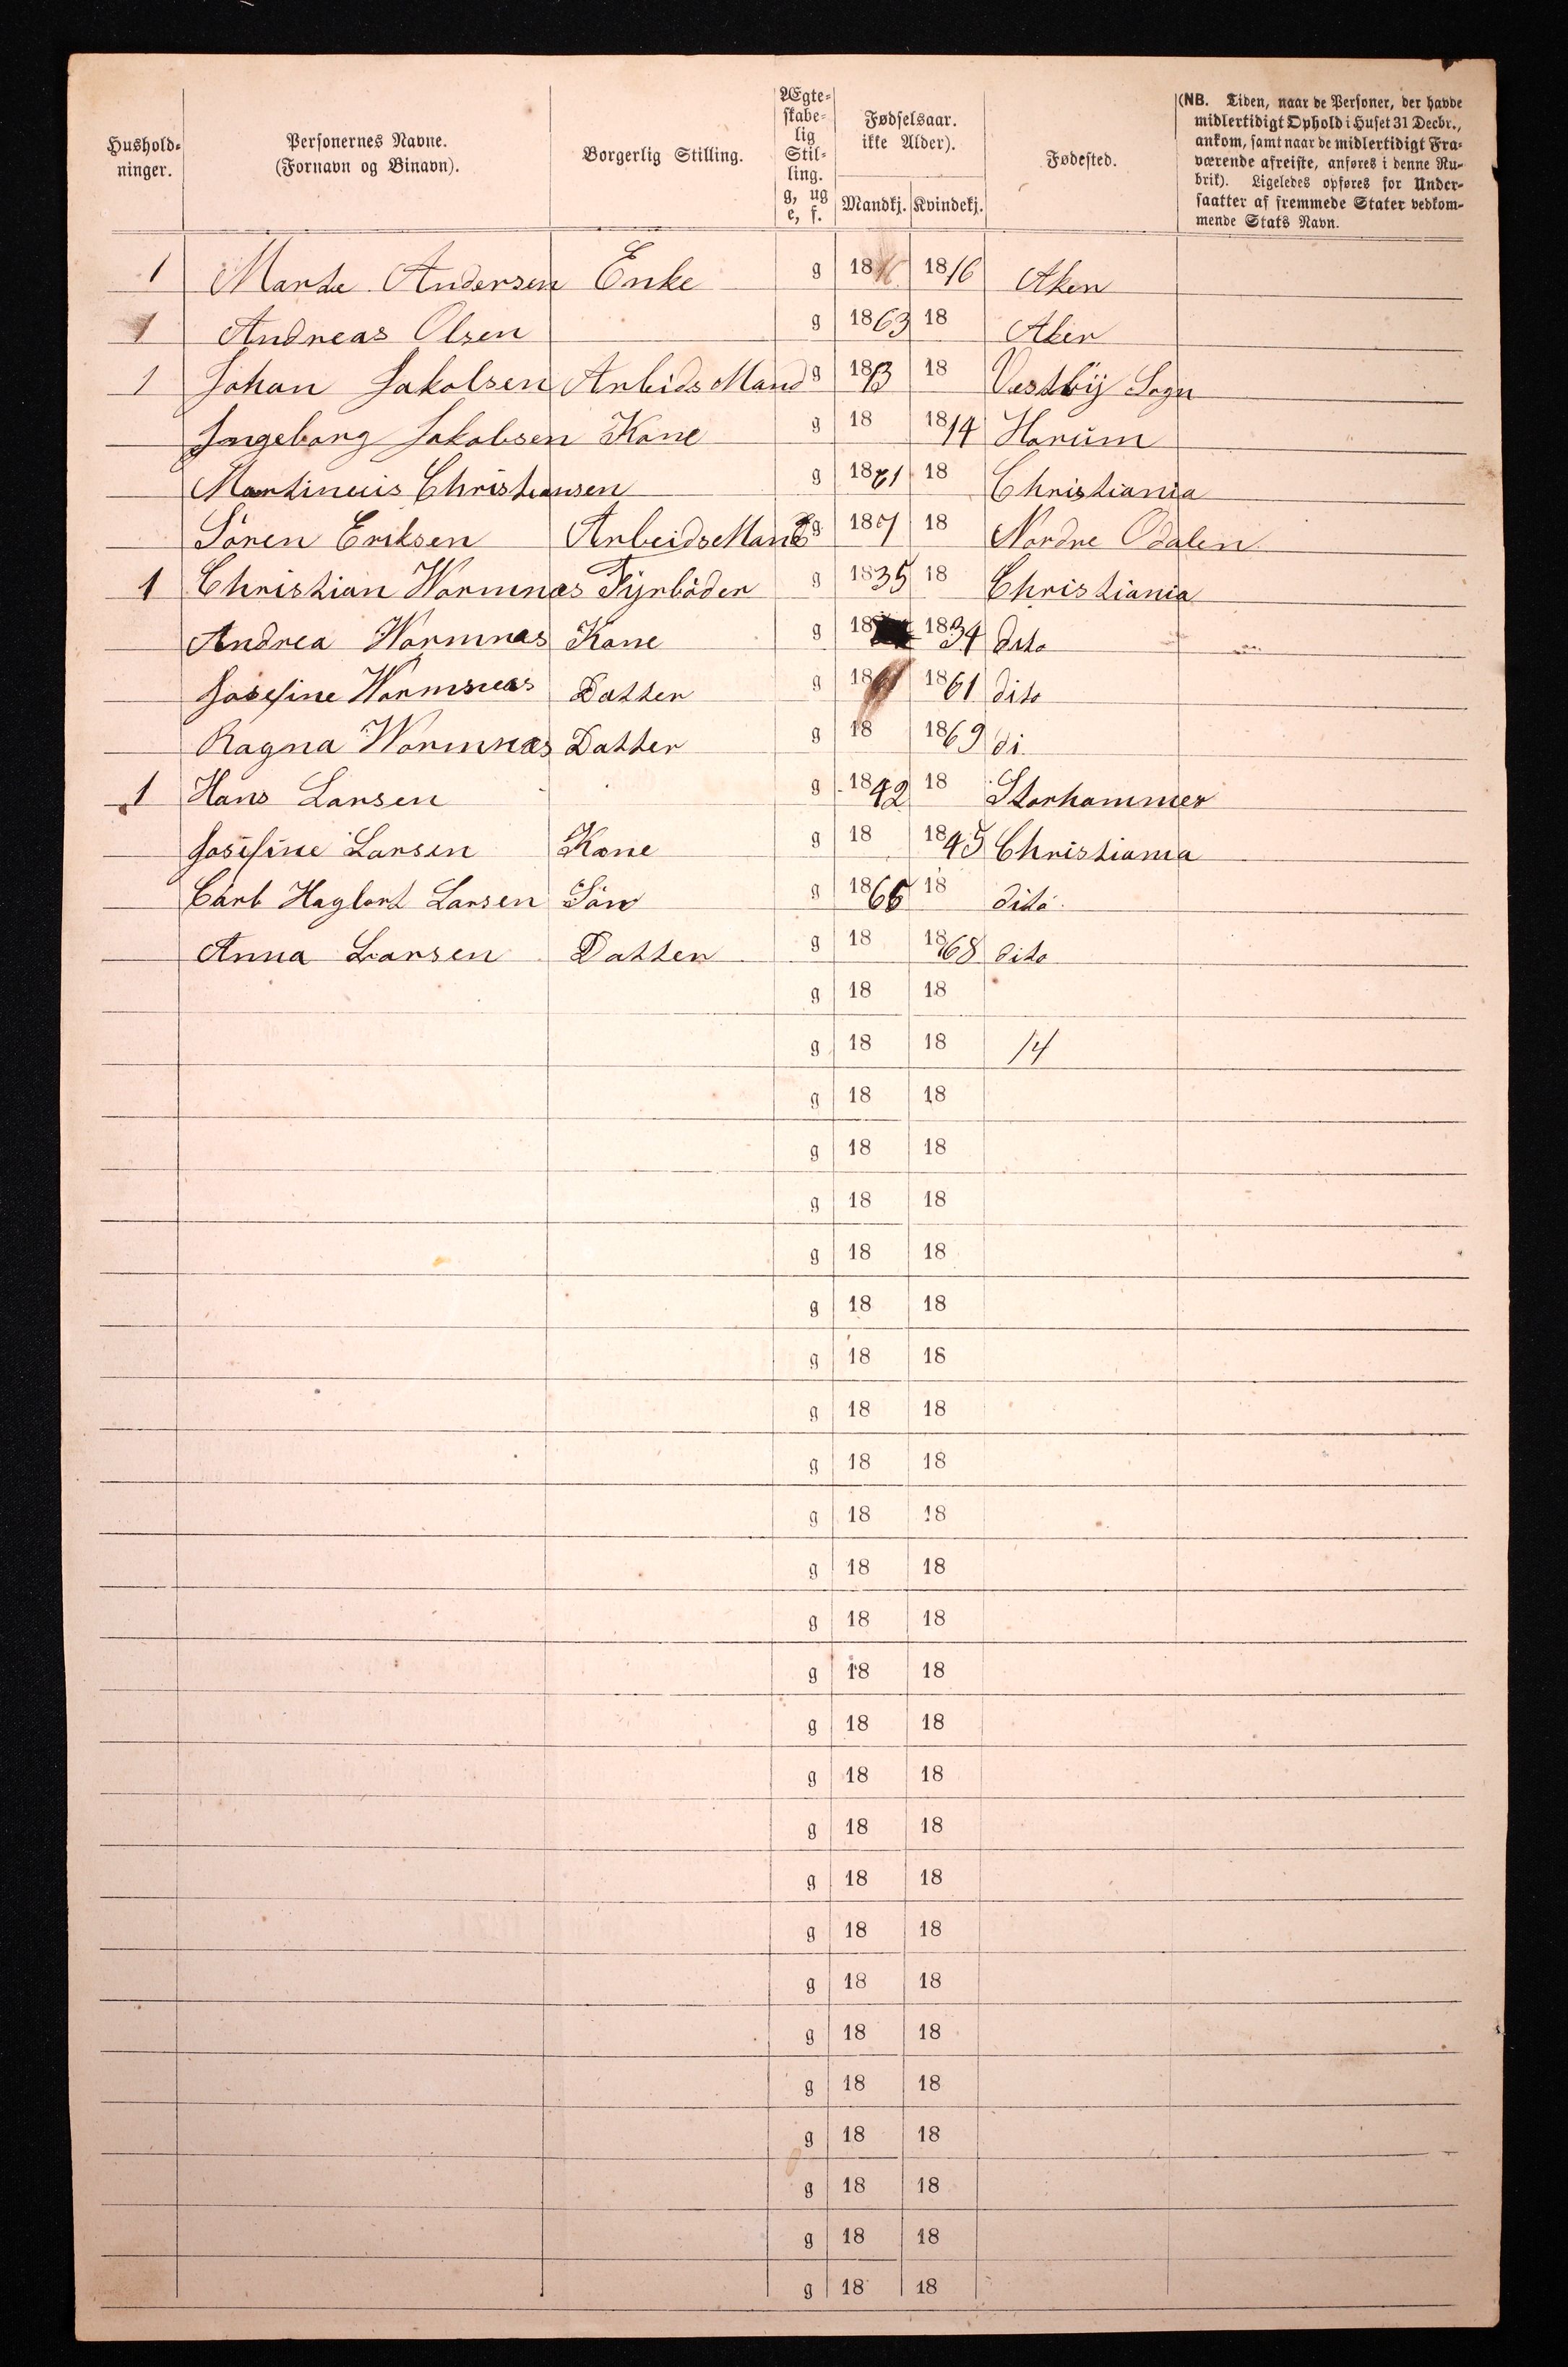 Hushold-
ninger.
Personernes Navne.
(Fornavn og Binavn).
Borgerlig Stilling.
Ægte-
skabe-
lig
Stil-
ling.
g, ug
e, f.
Fødselsaar.
ikke Alder).
Mandkj. Kvindekj.
Fødested.
(NB. Tiden, naar de Personer, der havde
midlertidigt Ophold i Huset 31 Decbr.,
ankom, samt naar de midlertidigt Fra-
værende afreiste, anføres i denne Ru-
brik). Ligeledes opføres for Under-
saatter af fremmede Stater vedkom-
mende Stats Navn.
1 Marte Andersen Enke g 18 1816 Aker
1 Andreas Olsen g 1863 18 Aker
1 Johan Jakobsen Arbeids Mand g 1813 18 Vestbÿ Sogn
Ingeborg Jakobsen Kone g 18 1814 Horüm
Martineüs Christiansen g 1861 18 Christiania
Sören Eriksen ArbeidsMand g 18 18 Nordre Odalen
1 Christian Wormnæs Fÿrböder g 1835 18 Christiania
Andrea Wormnæs Kone g 18 1834 dito
Josefine Wormnæs Datter g 18 1861 dito
Ragna Wormnæs Datter g 18 1869 di
1 Hans Larsen g 1842 18 Storhammer
Josefine Larsen Kone g 18 1845 Christiania
Carl Hagbart Larsen Sön g 1865 18 dito
Anna Larsen Datter g 18 1868 dito
g 18 18
g 18 18 14
g 18 18
g 18 18
g 18 18
g 18 18
g 18 18
g 18 18
g 18 18
g 18 18
g 18 18
g 18 18
g 18 18
g 18 18
g 18 18
g 18 18
g 18 18
g 18 18
g 18 18
g 18 18
g 18 18
g 18 18
g 18 18
g 18 18
g 18 18
g 18 18